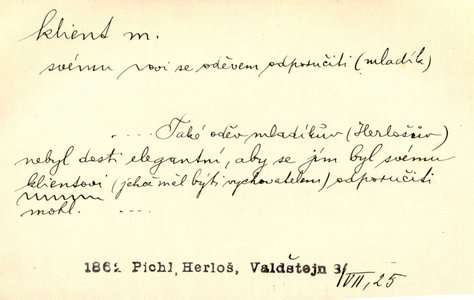 klient m.
svému ~ovi se oděvem odporučiti (mladík)
.... Také oděv mladíkův (Herlošův)
nebyl dosti elegantní, aby se jím byl svému
klientovi (jehož měl býti vychovatelem) odporučiti
mohl. ....
1862 Pichl, Herloš, Valdštejn 3/VII, 25